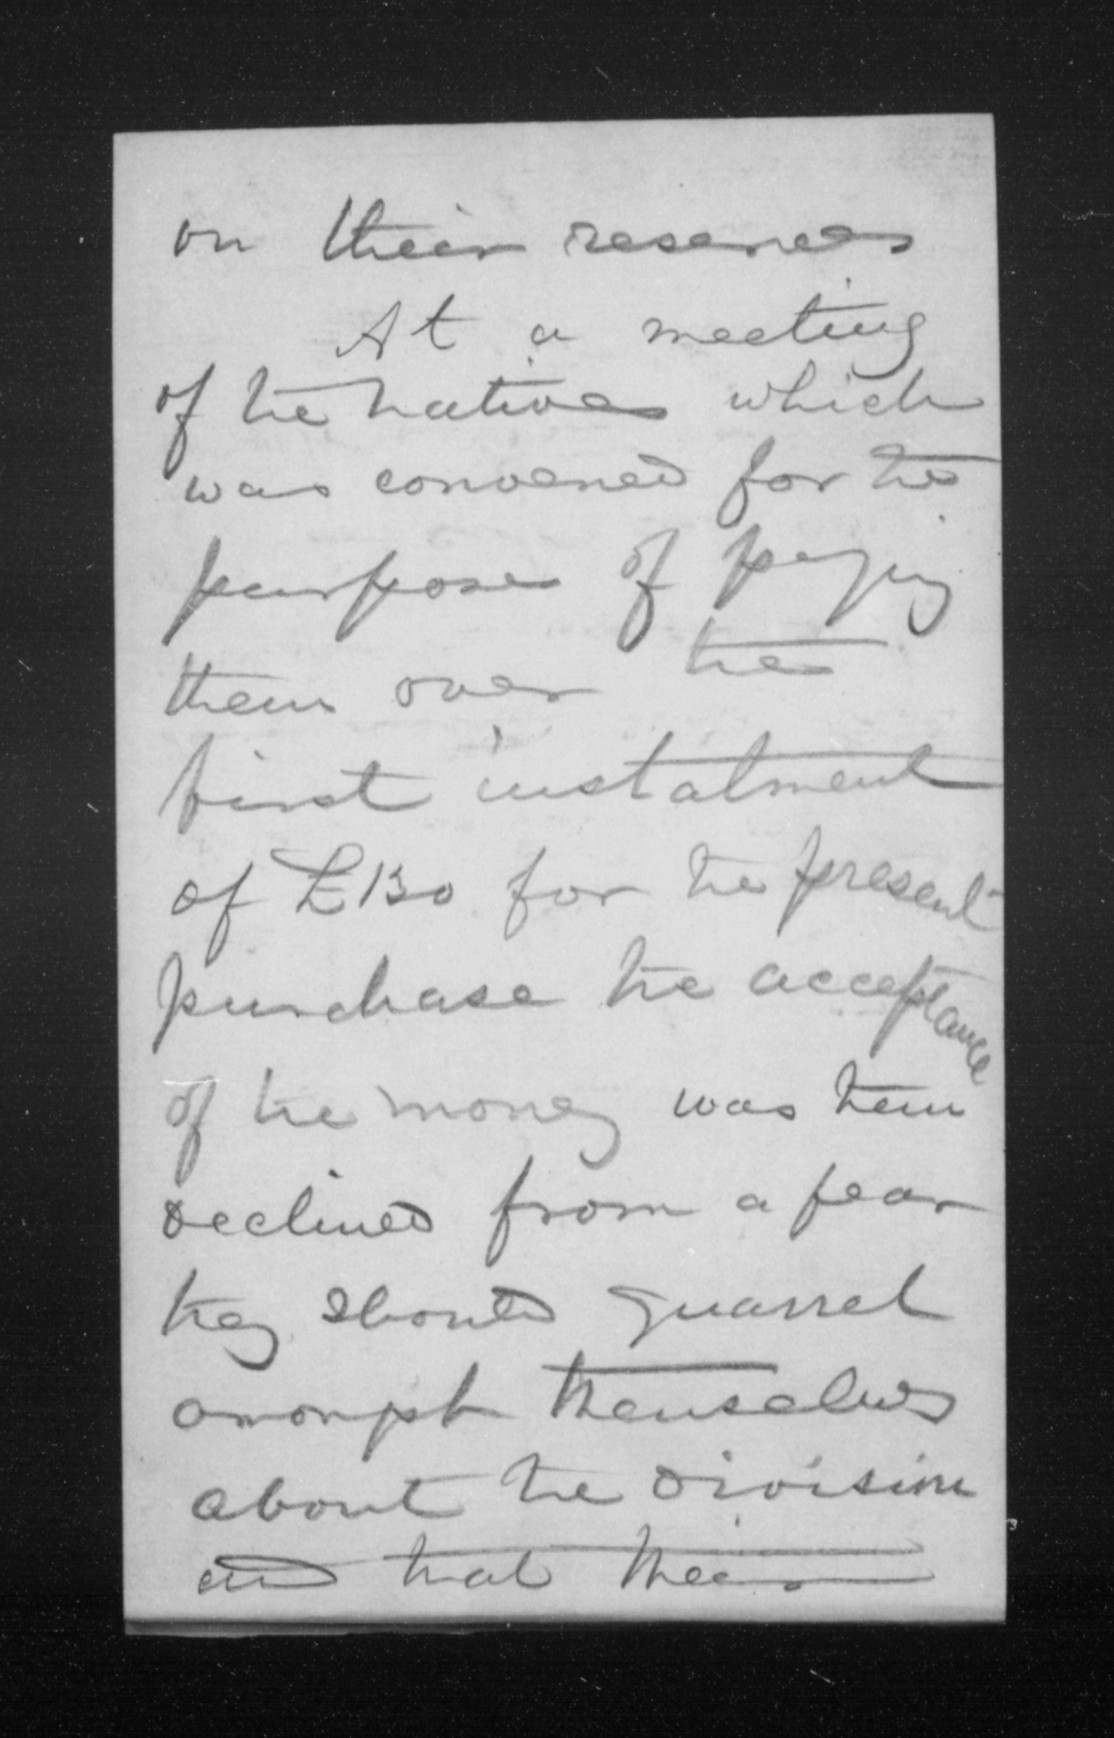 on their reserves
At a meeting
of the natives which
was convened for the
purpose of paying
them over the
first instalment
of £150 for the present
purchase the acceptance
of the money was then
declined from a fear
they should quarrel
amongst themselves
about the division
and that their